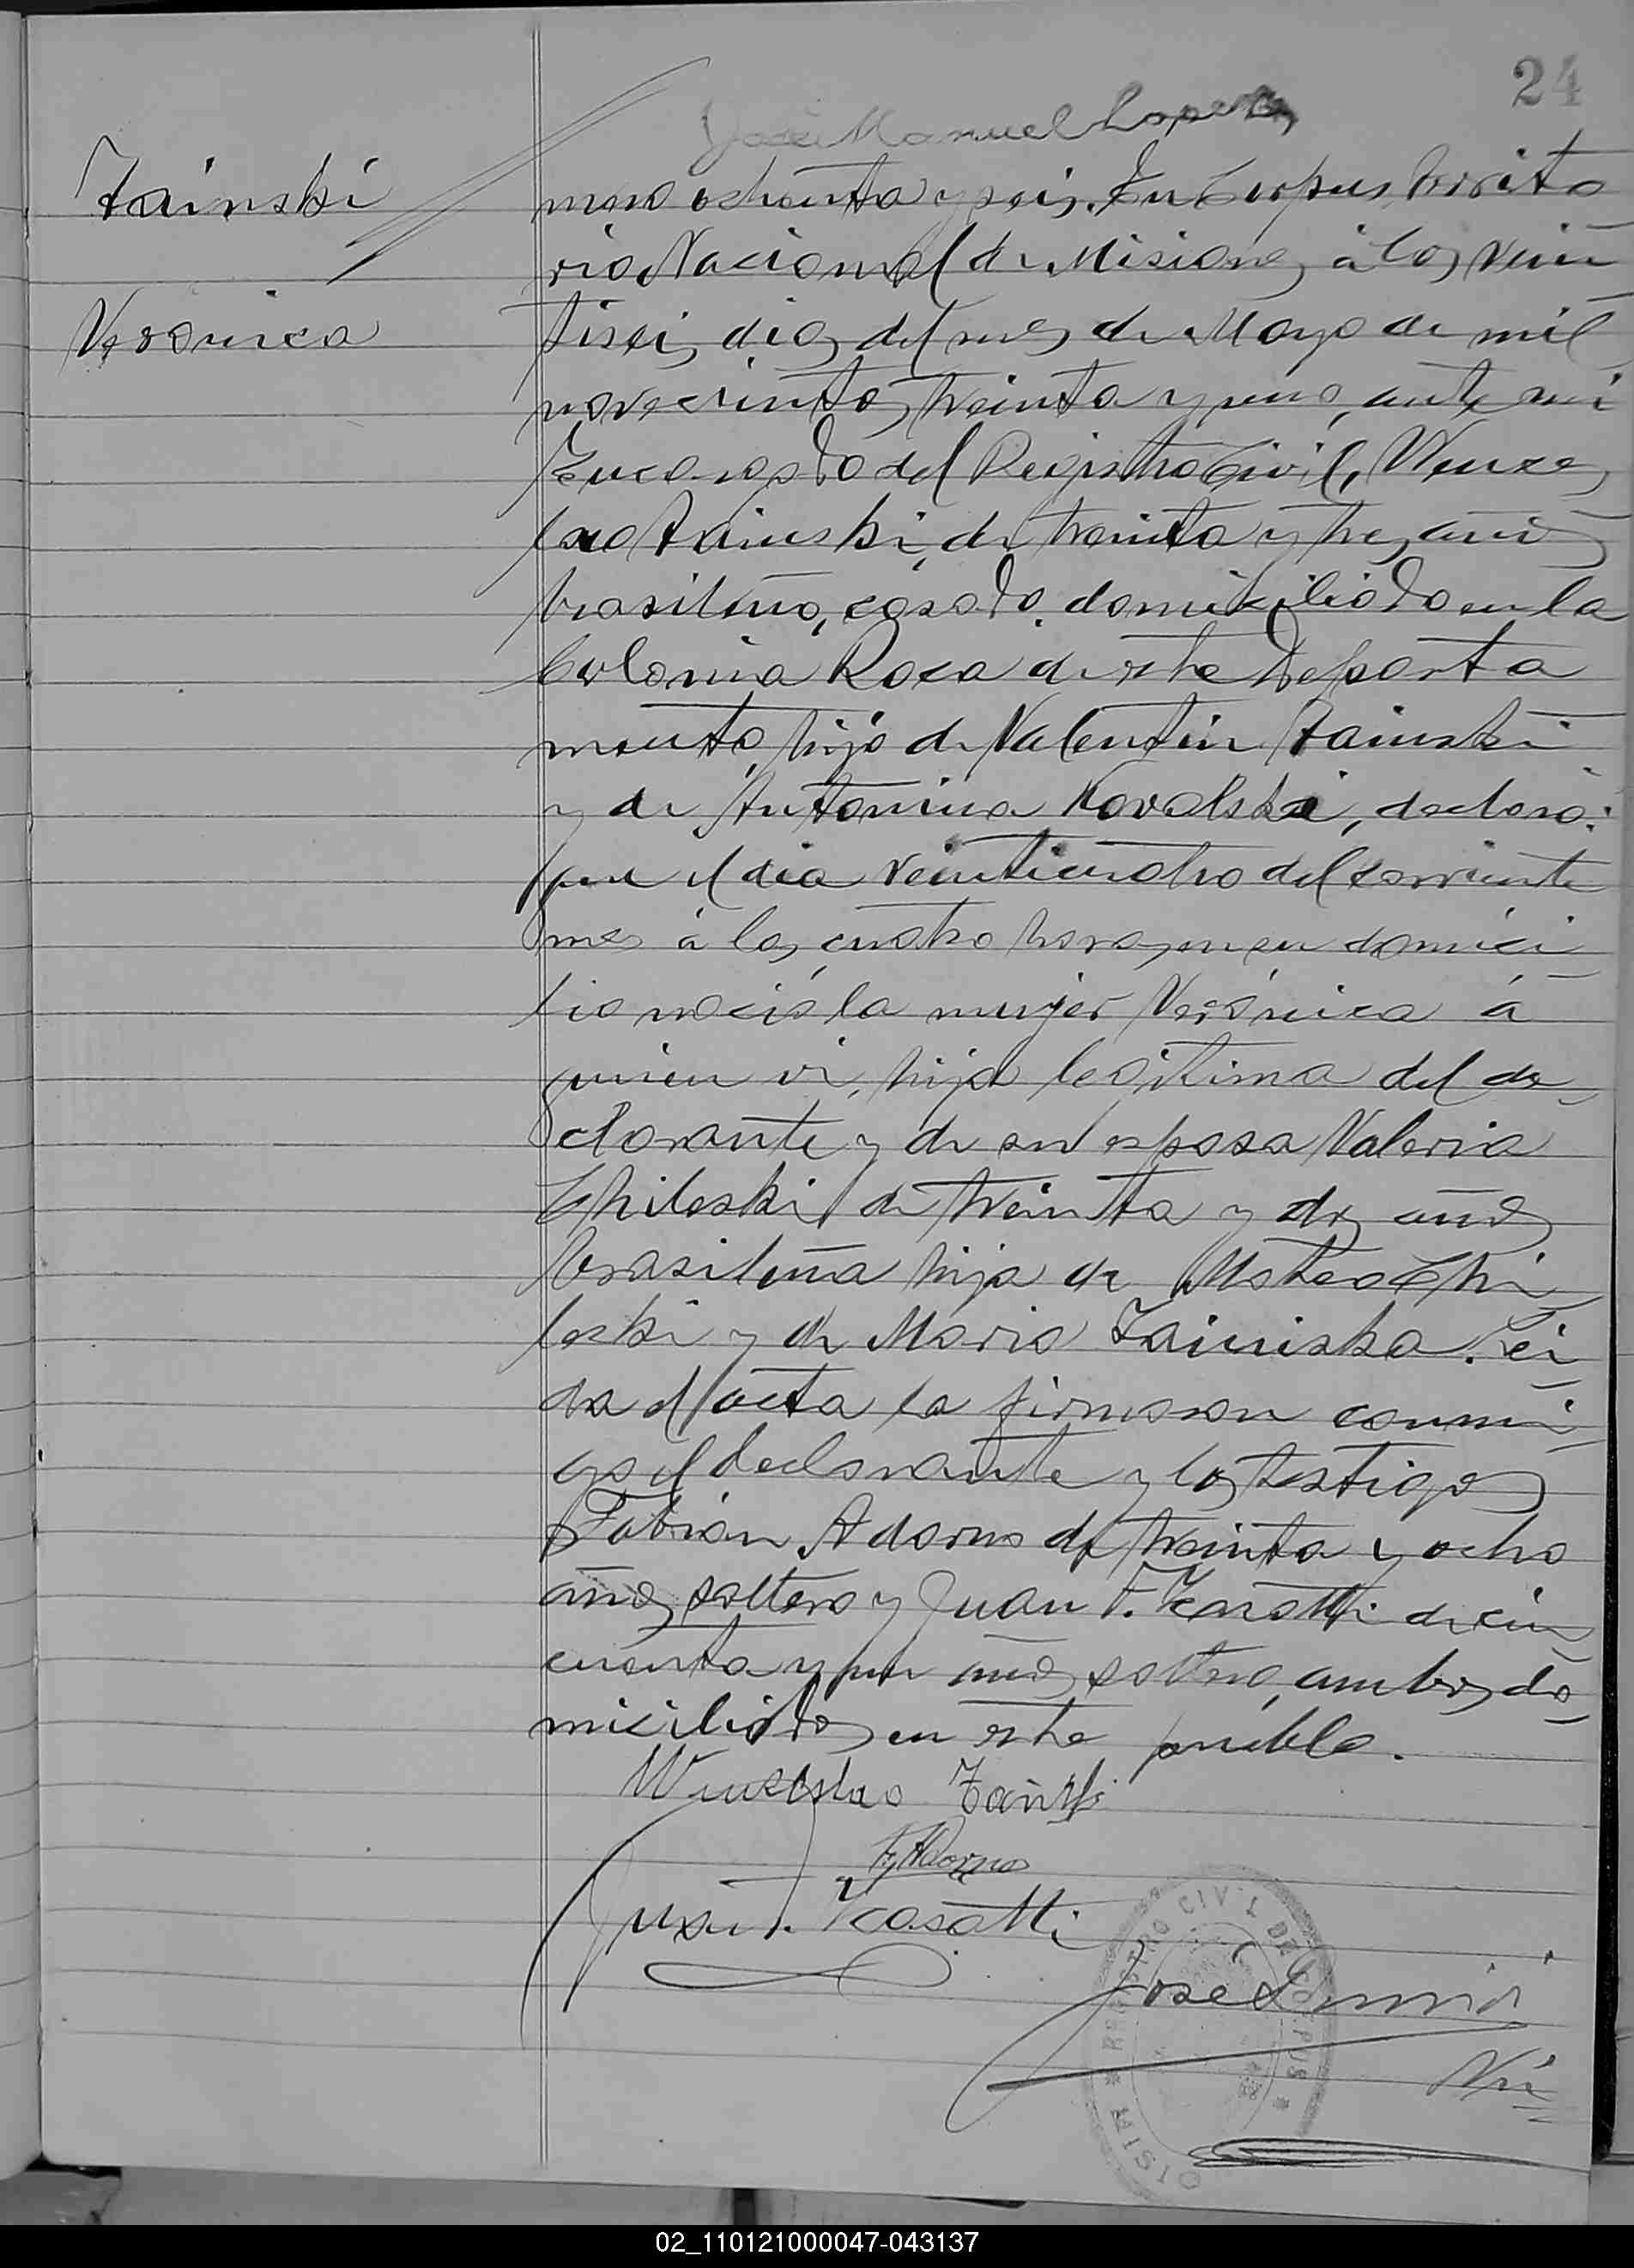 24
José Manuel Lopez
Zainski
Veronica
mero ochenta y seis. En Corpus, territo
rio Nacional de Misiones, à los vein
tiseis dias del mes de Mayo de mil
novecientos treinta y uno, ante mi
Encargado del Registro Civil, Wences
lao Zainski, de treinta y tres años
brasileño, casado, domiciliado en la
Colonia Roca de este Departa
mento, hijo de Valentin Zainski
y de Antonina Kovalski, declaró:
que el dia veinticuatro del corriente
mes à las cuatro horas, en su domici
lio nació la mujer Verónica á
quien vi, hija legitima del de
clarante y de su esposa Valeria
Chileski de treinta y dos años
brasileña hija de Mateo Chi
leski y de Maria Zainiska. Lei
da el acta la firmaron conmi
go el declarante y los testigos
Fabián Adorno de treinta y ocho
años, soltero y Juan F. Kasatti de cin
cuenta y un años, soltero, ambos do
miciliados en este pueblo.
Wenceslao Zainski
F. Adorno
Juan F. Kasatti
REGISTRO CIVIL DE CORPUS * MISIO
José
02_110121000047-043137